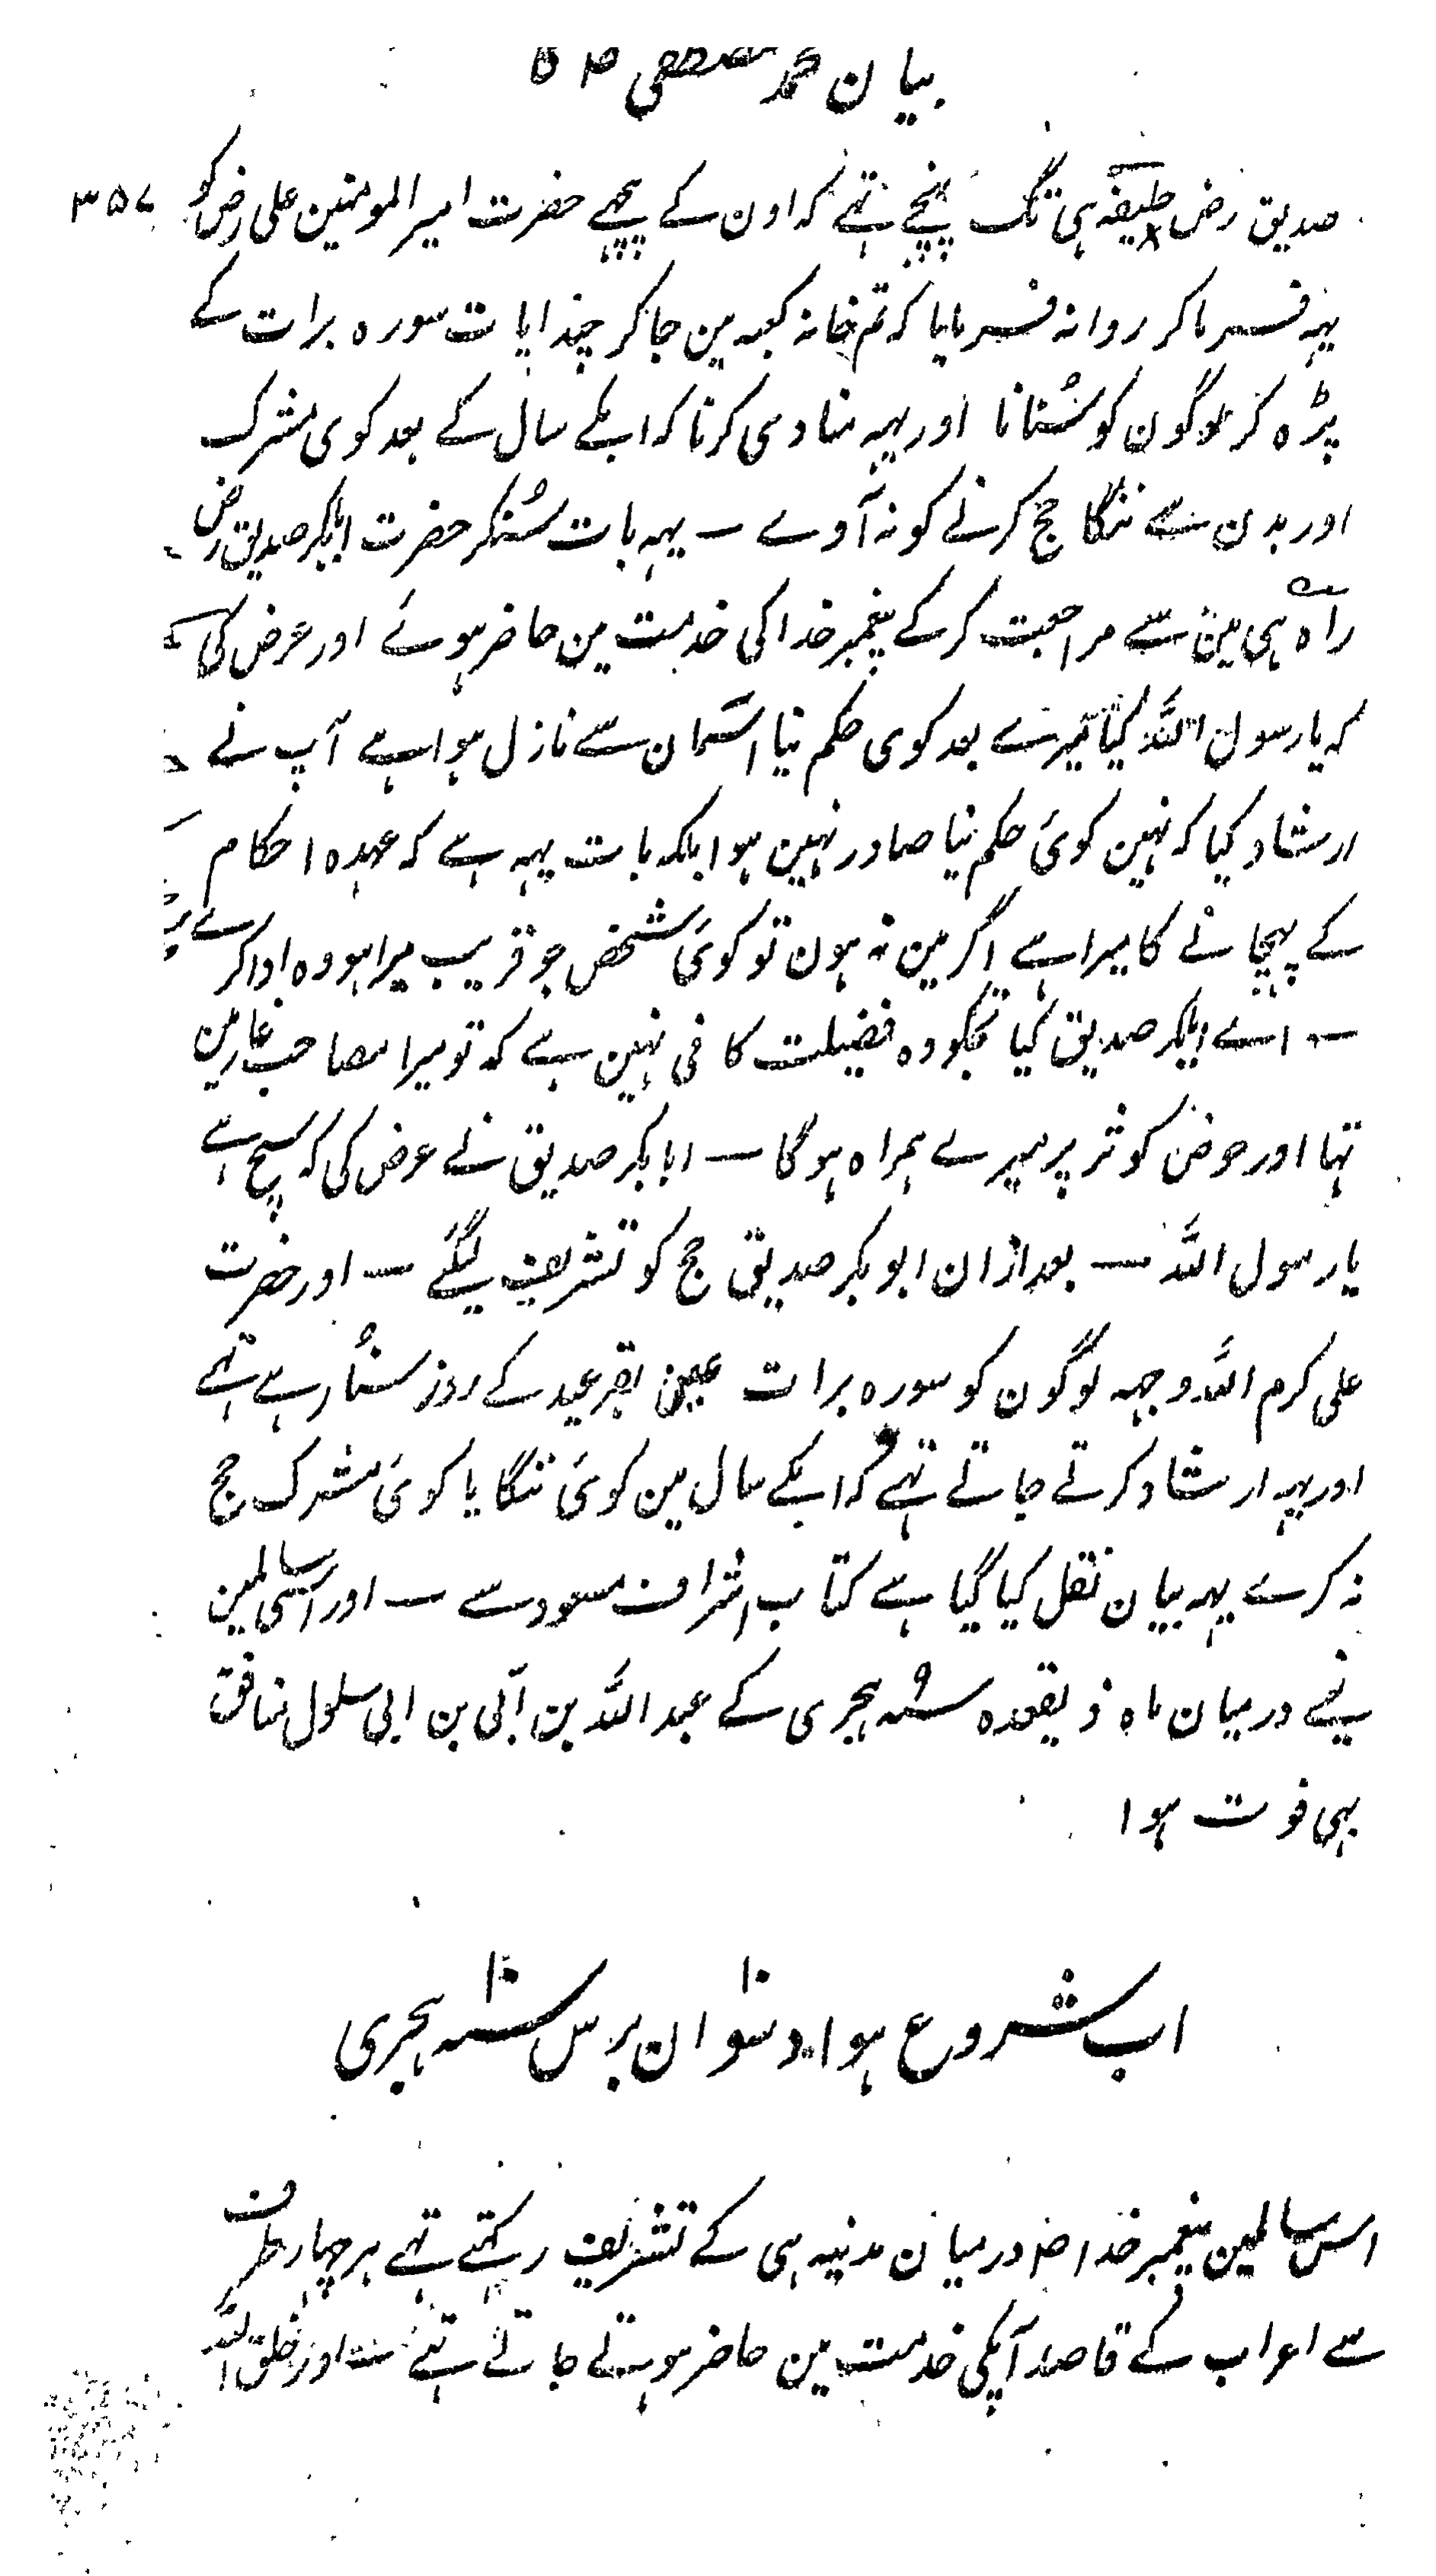 بیان محمد مصطفی
صدیق رض حلیفہ ہی تک پہنچے تہے کہ اون کے پیچہے حضرت امیر المومنین علی رض کو ۳۵۷
یہہ فرما کر روانہ فرمایا کہ تم خانہ کعبہ مین جا کر چند ایات سورہ برات کے
پڑہ کر لوگون کو سُنانا اور یہہ منادی کرنا کہ ابکے سال کے بعد کوی مشرک
اور بدن سے ننگا حج کرنے کو نہ آوے — یہہ بات سُنکر حضرت ابابکر صدیق رض
راہ ہی مین سے مراجعت کر کے پیغمبر خدا کی خدمت مین حاضر ہوئے اور عرض کی
کہ یا رسول اللہ کیا میرے بعد کوی حکم نیا اسمان سے نازل ہوا ہے آپ نے
ارشاد کیا کہ نہین کوئ حکم نیا صادر نہین ہوا بلکہ بات یہہ ہے کہ عہدہ احکام
کے پہچانے کا میرا ہے اگر مین نہ ہون تو کوئ شخص جو قریب میرا ہو وہ ادا کرے
— اے ابابکر صدیق کیا تجکو وہ فضیلت کافی نہین ہے کہ تو میرا مصاحب غار مین
تہا اور حوض کوثر پر میرے ہمراہ ہوگا — ابابکر صدیق نے عرض کی کہ سچ ہے
یا رسول اللہ — بعد ازان ابوبکر صدیق حج کو تشریف لیگئے — اور حضرت
علی کرم اللہ وجہہ لوگون کو سورہ برات عین بقر عید کے روز سنُا رہے تہے
اور یہہ ارشاد کرتے جاتے تہے کہ ابکے سال مین کوئ ننگا یا کوئ مشرک حج
نہ کرے یہہ بیان نقل کیا گیا ہے کتاب اشراف مسعود سے — اور اسی سالمین
یعنے درمیان ماہ ذیقعدہ سنہ ۹ ہجری کے عبد اللہ بن اُبی بن ابی سلول منافق
بہی فوت ہوا
اب شروع ہوا دسوان برس سنہ ۱۰ ہجری
اس سالمین پیغمبر خدا درمیان مدنیہ ہی کے تشریف رکہتے تہے ہر چہار طرف
سے اعراب کے قاصد آپکی خدمت مین حاضر ہوتے جاتے تہے اور خلق اللہ